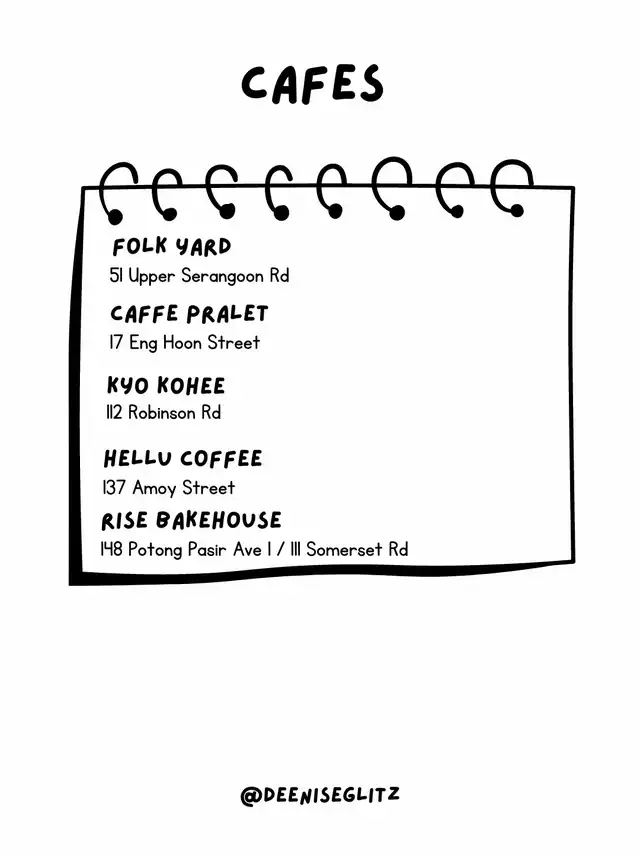 CAFES
FOLK YARD
51 Upper Serangoon Rd
CAFFE PRALET
17 Eng Hoon Street
KYO KOHEE
112 Robinson Rd
HELLU COFFEE
137 Amoy Street
RISE BAKEHOUSE
148 Potong Pasir Ave 1 / 111 Somerset Rd
@DEENISEGLITZ